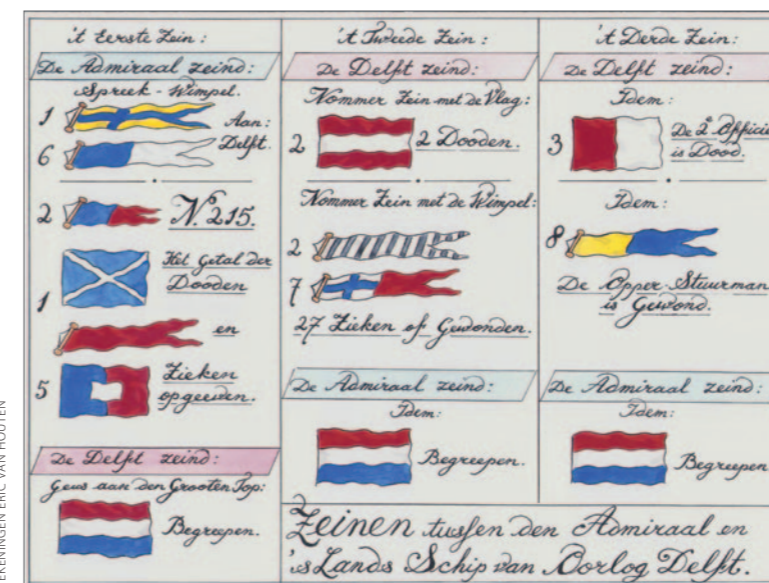 't Eerste Zein:
De Admiraal zeind:
Spreek-Wimpel.
1
Aan:
6
Delft.
2
N. 215.
Het Getal der
Dooden
1
en
5
Zieken
opgeeven.
De Delft zeind:
Geus aan den Grooten Top:
Begreepen.
't Tweede Zein:
De Delft zeind:
Nommer Zein met de Vlag:
2
2 Dooden.
Nommer Zein met de Wimpel:
2
7
27 Zieken of Gewonden.
De Admiraal zeind:
Idem:
Begreepen.
't Derde Zein:
De Delft zeind:
Idem:
3
De 2e Officie
is Dood.
Idem:
8
De Opper-Stuurman
is Gewond.
De Admiraal zeind:
Idem:
Begreepen
Zeinen tussen den Admiraal en
's Lands Schip van Oorlog Delft.
EKENINGEN ERIC VAN HOUTEN